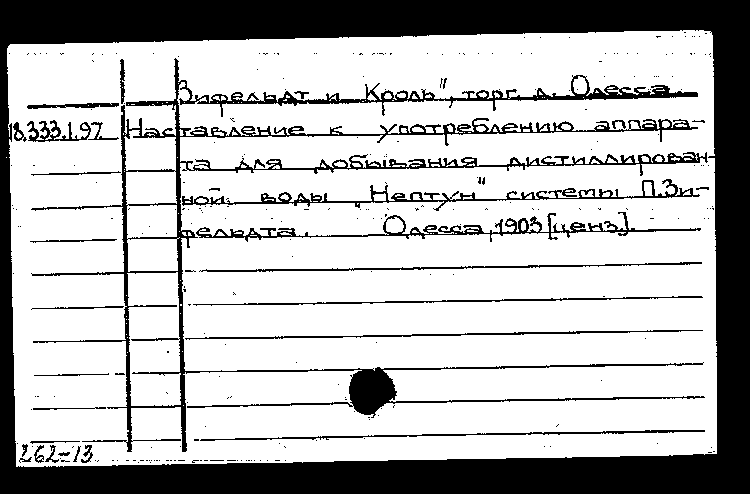 „Зифельдт и Кроль", торг. д. Одесса.
18.333.1.97 Наставление к употреблению аппара-
та для добывания дистиллирован-
ной воды „Нептун" системы П.Зи-
фельдта. Одесса, 1903 [ценз].
262-13